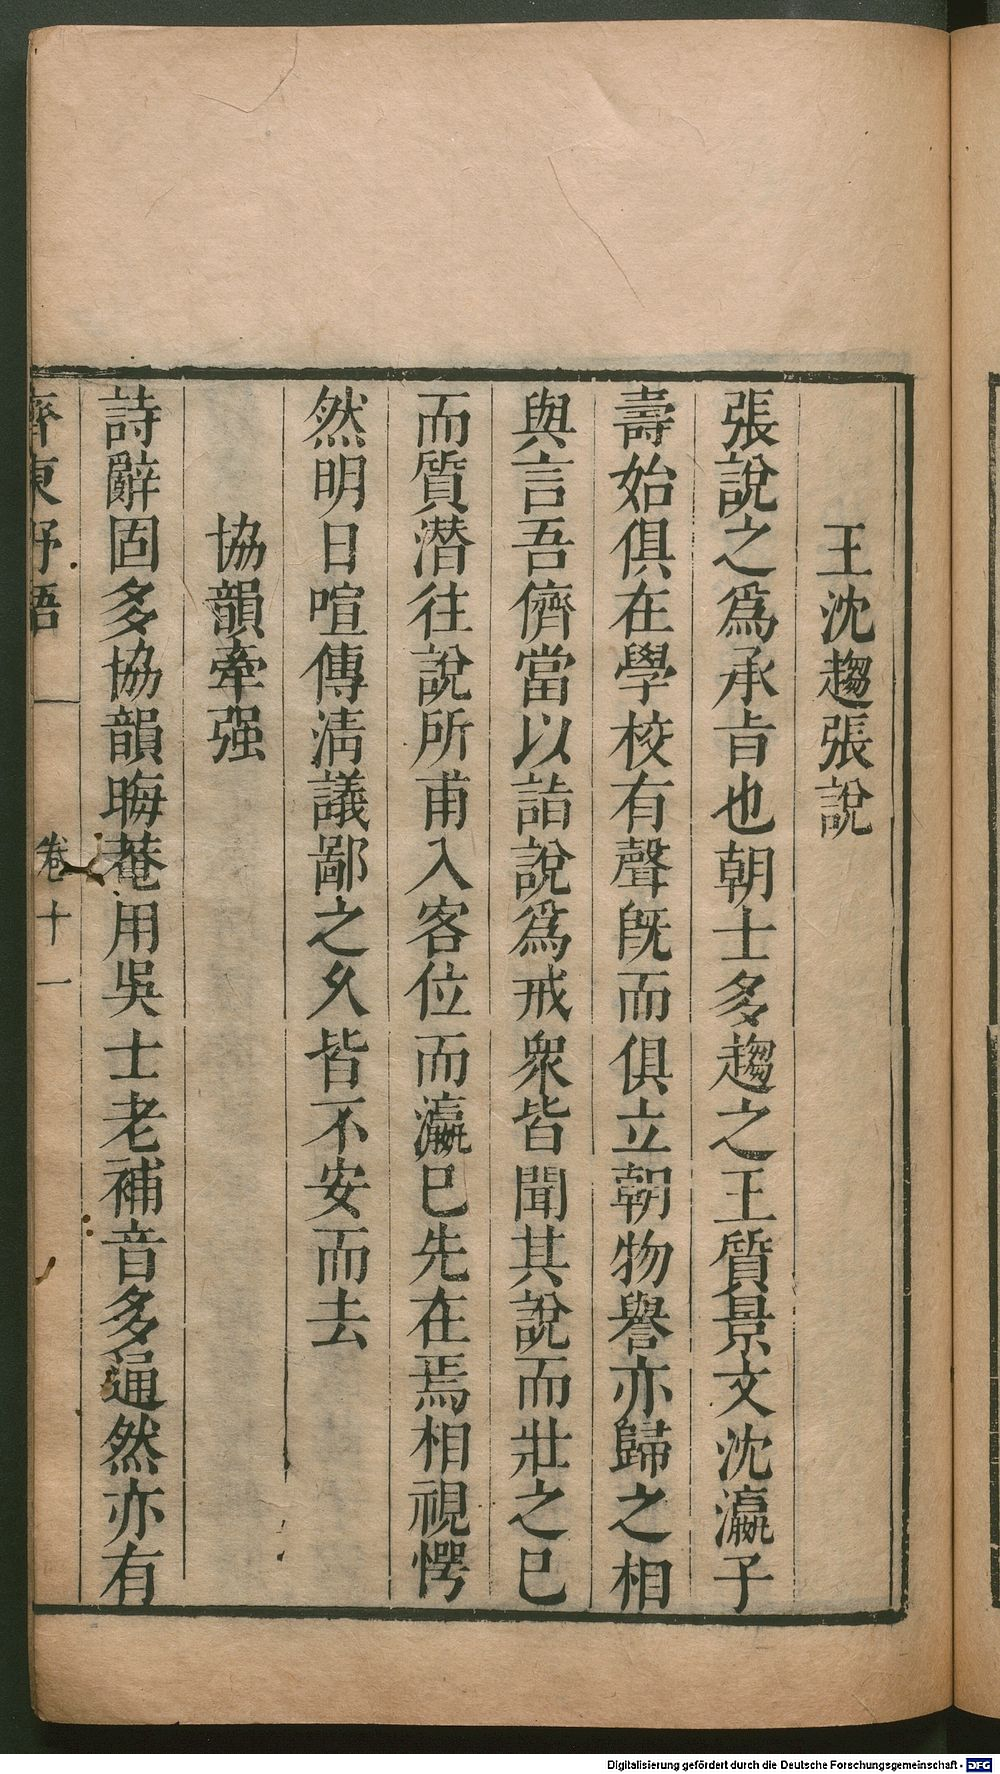 王沈趨張說
張說之爲承㫖也朝士多趨之王質景文沈瀛子
壽始俱在學校有聲旣而俱立朝物譽亦歸之相
與言吾儕當以詣說爲戒衆皆聞其說而壯之已
而質潜往說所甫入客位而瀛已先在焉相視愕
然明日喧傳淸議鄙之久皆不安而去
協韻牽强
詩辭固多協韻晦菴用吳士老補音多通然亦有
齊東野語 卷十一
Digitalisierung gefördert durch die Deutsche Forschungsgemeinschaft - DFG